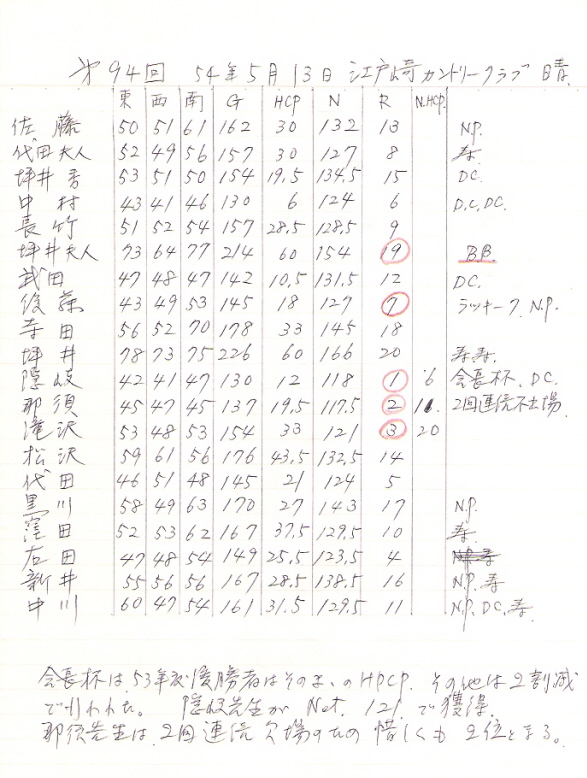 第94回 54年5月13日 江戸崎カントリークラブ 晴
東 西 南 G HCP N R N.HCP
佐藤 50 51 61 162 30 132 13 N.P.
代田夫人 52 49 56 157 30 127 8 寿
坪井 53 51 50 154 19.5 134.5 15 DC.
中村 43 41 46 130 6 124 6 D.C, DC.
長竹 51 52 54 157 28.5 128.5 9
坪井夫人 73 64 77 214 60 154 19 B.B.
武田 47 48 47 142 10.5 131.5 12 DC.
後藤 43 49 53 145 18 127 7 ラッキー7, N.P.
寺田 56 52 70 178 33 145 18
坪井 78 73 75 226 60 166 20 寿寿.
隠岐 42 41 47 130 12 118 1 6 会長杯、DC.
那須 45 47 45 137 19.5 117.5 2 2回連続不出場
滝沢 53 48 53 154 33 121 3 20
松沢 59 61 56 176 43.5 132.5 14
代田 46 51 48 145 21 124 5
黒川 58 49 63 170 27 143 17 N.P.
窪田 52 53 62 167 37.5 129.5 10 寿.
左田 47 48 54 149 25.5 123.5 4
新井 55 56 56 167 28.5 138.5 16 N.P. 寿
中川 60 47 54 161 31.5 129.5 11 N.P, DC, 寿
会長杯は、53年度優勝者はそのままのHPCP. その他は2割減
で行われた。 隠岐先生が Net. 121 で獲得.
那須先生は、2回連続欠場のため惜しくも2位となる。